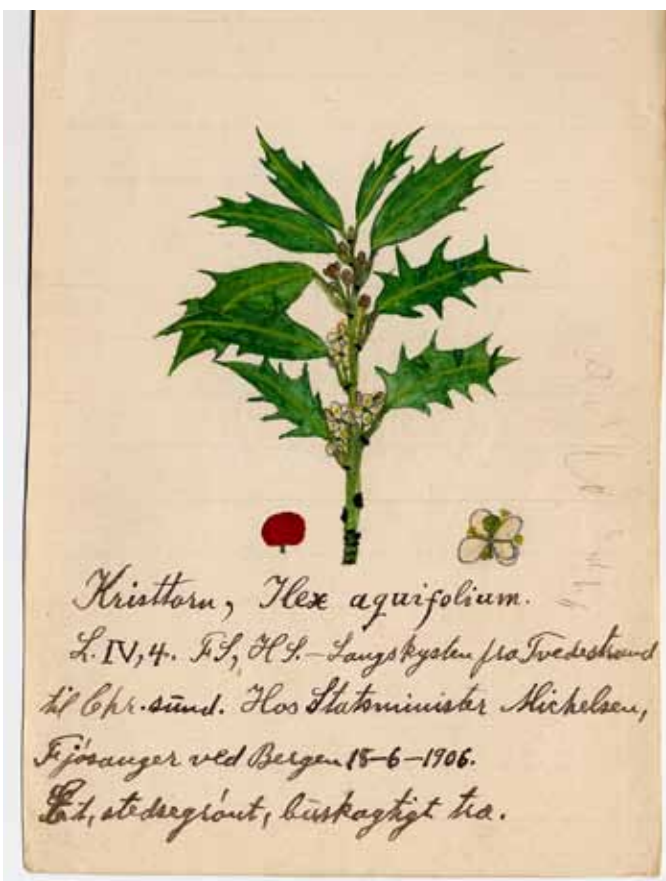 Kristtorn, Ilex aquifolium.
L. IV, 4. FS, HS. – Langs kysten fra Tvedestrand
til Chr.sund. Hos Statsminister Michelsen,
Fjøsanger ved Bergen 18-6-1906.
Et, stedsegrønt, buskagtigt træ.